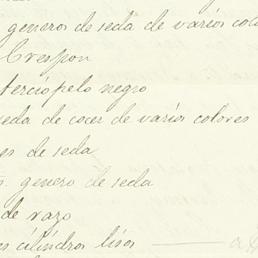 generos de seda de varios colo
Crespon
terciopelo negro
seda de cocer de varios colores
es de seda
genero de seda
de razo
es cilindros lisos